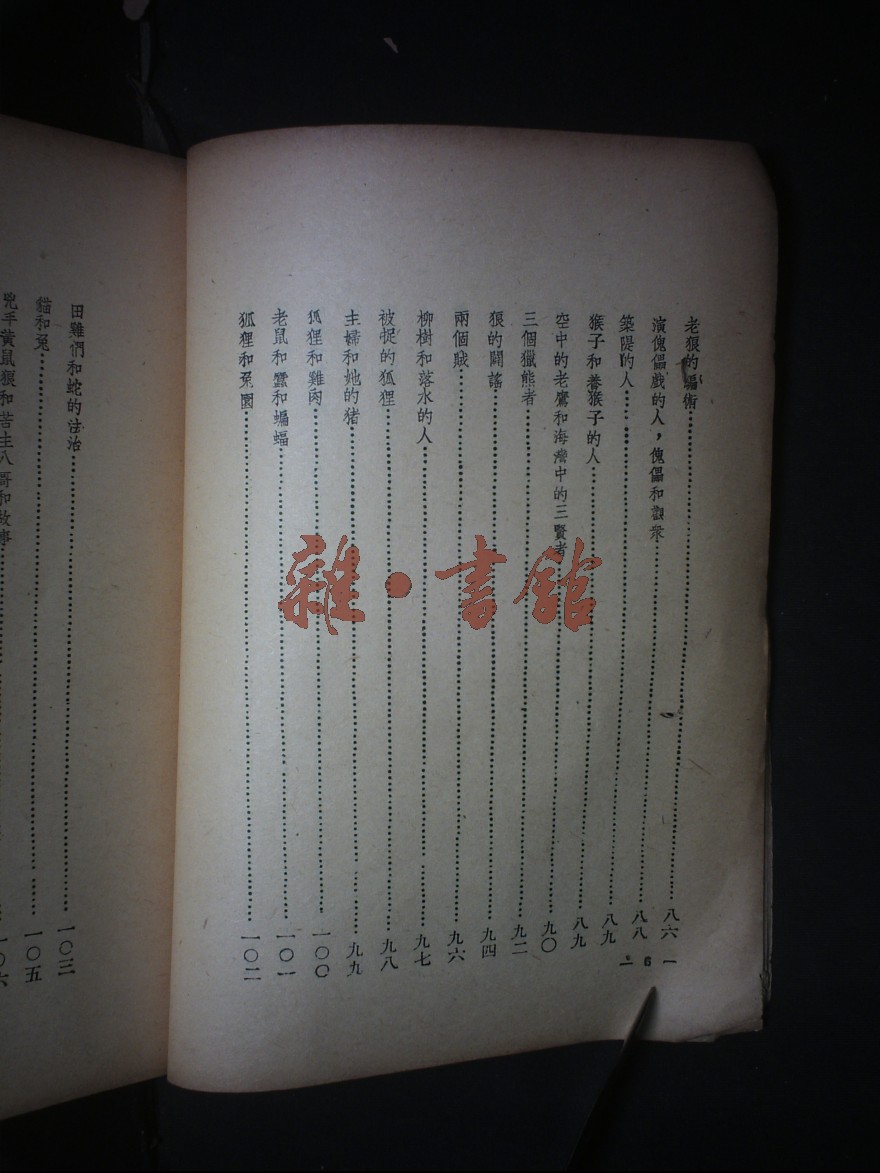 老狼的騙術……八六
演傀儡戲的人，傀儡和觀衆……八八
築隄的人……八九
猴子和養猴子的人……八九
空中的老鷹和海灣中的三賢者……九〇
三個獵熊者……九二
狼的闢謠……九四
兩個賊……九六
柳樹和落水的人……九七
被捉的狐狸……九八
主婦和她的猪……九九
狐狸和雞肉……一〇〇
老鼠和蠶和蝙蝠……一〇一
狐狸和菓園……一〇二
— 6 —
田雞們和蛇的法治……一〇三
貓和兔……一〇五
兇手黃鼠狼和苦主八哥和故事……一〇六
雜·書館